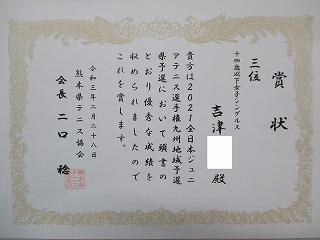 賞状
三位
十四歳以下女子シングルス
吉津 殿
貴方は2021全日本ジュニ
アテニス選手権九州地域予選
県予選において頭書の
とおり優秀な成績を
収められましたので
これを賞します。
令和三年三月二十八日
熊本県テニス協会
会長 二口 稔